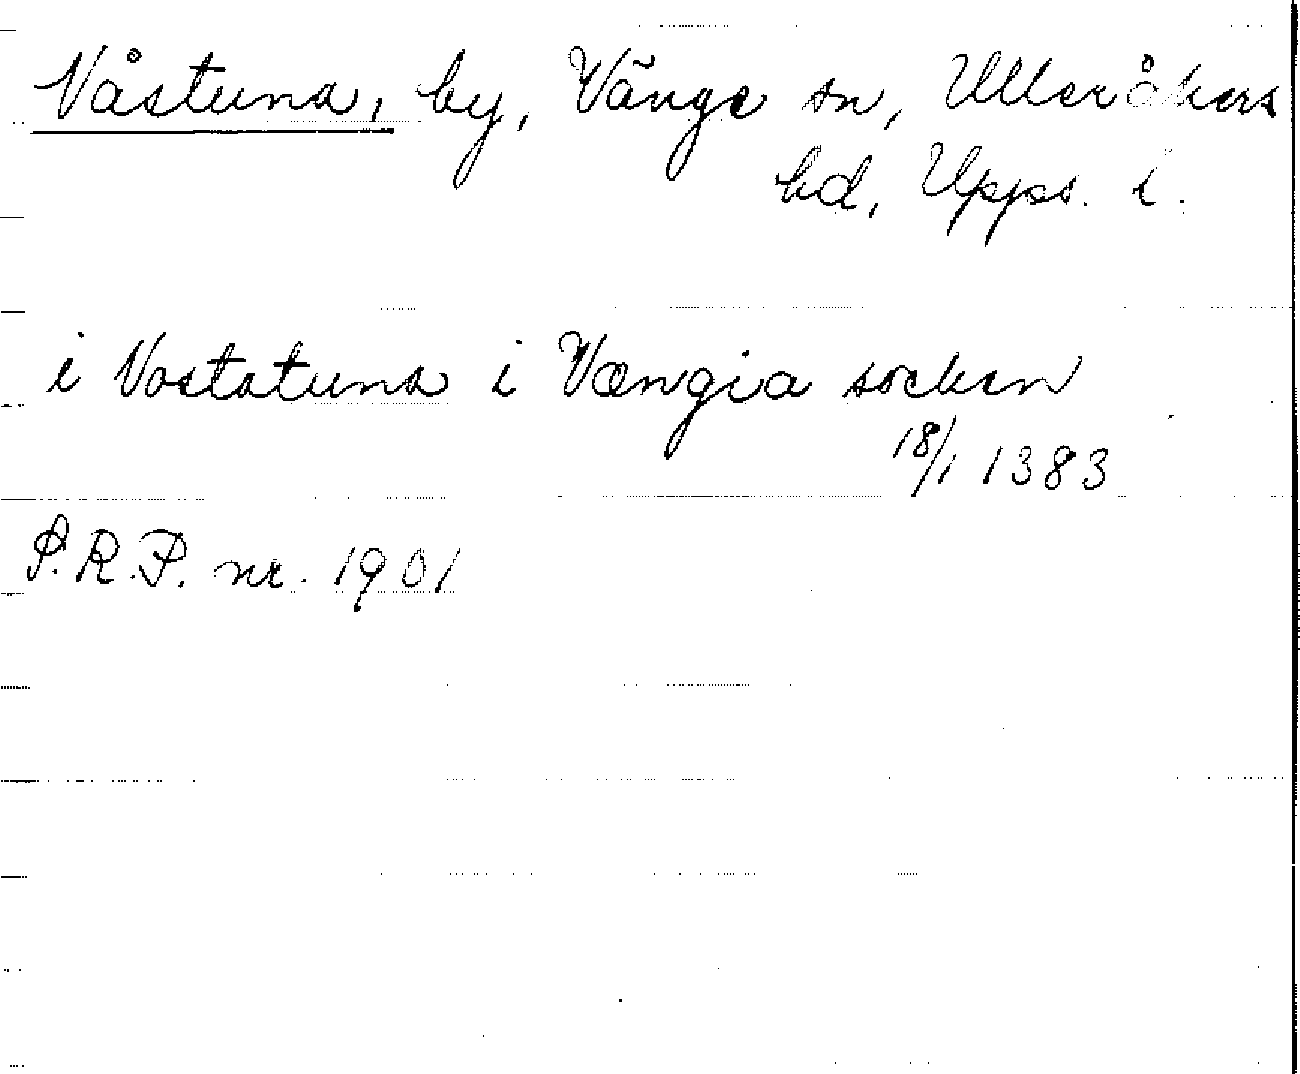 Våstuna, by, Vänge sn, Ulleråkers
hd, Upps. l.
i Vostatuna i Vængia socken
18/1 1383
S.R.P. nr. 1901